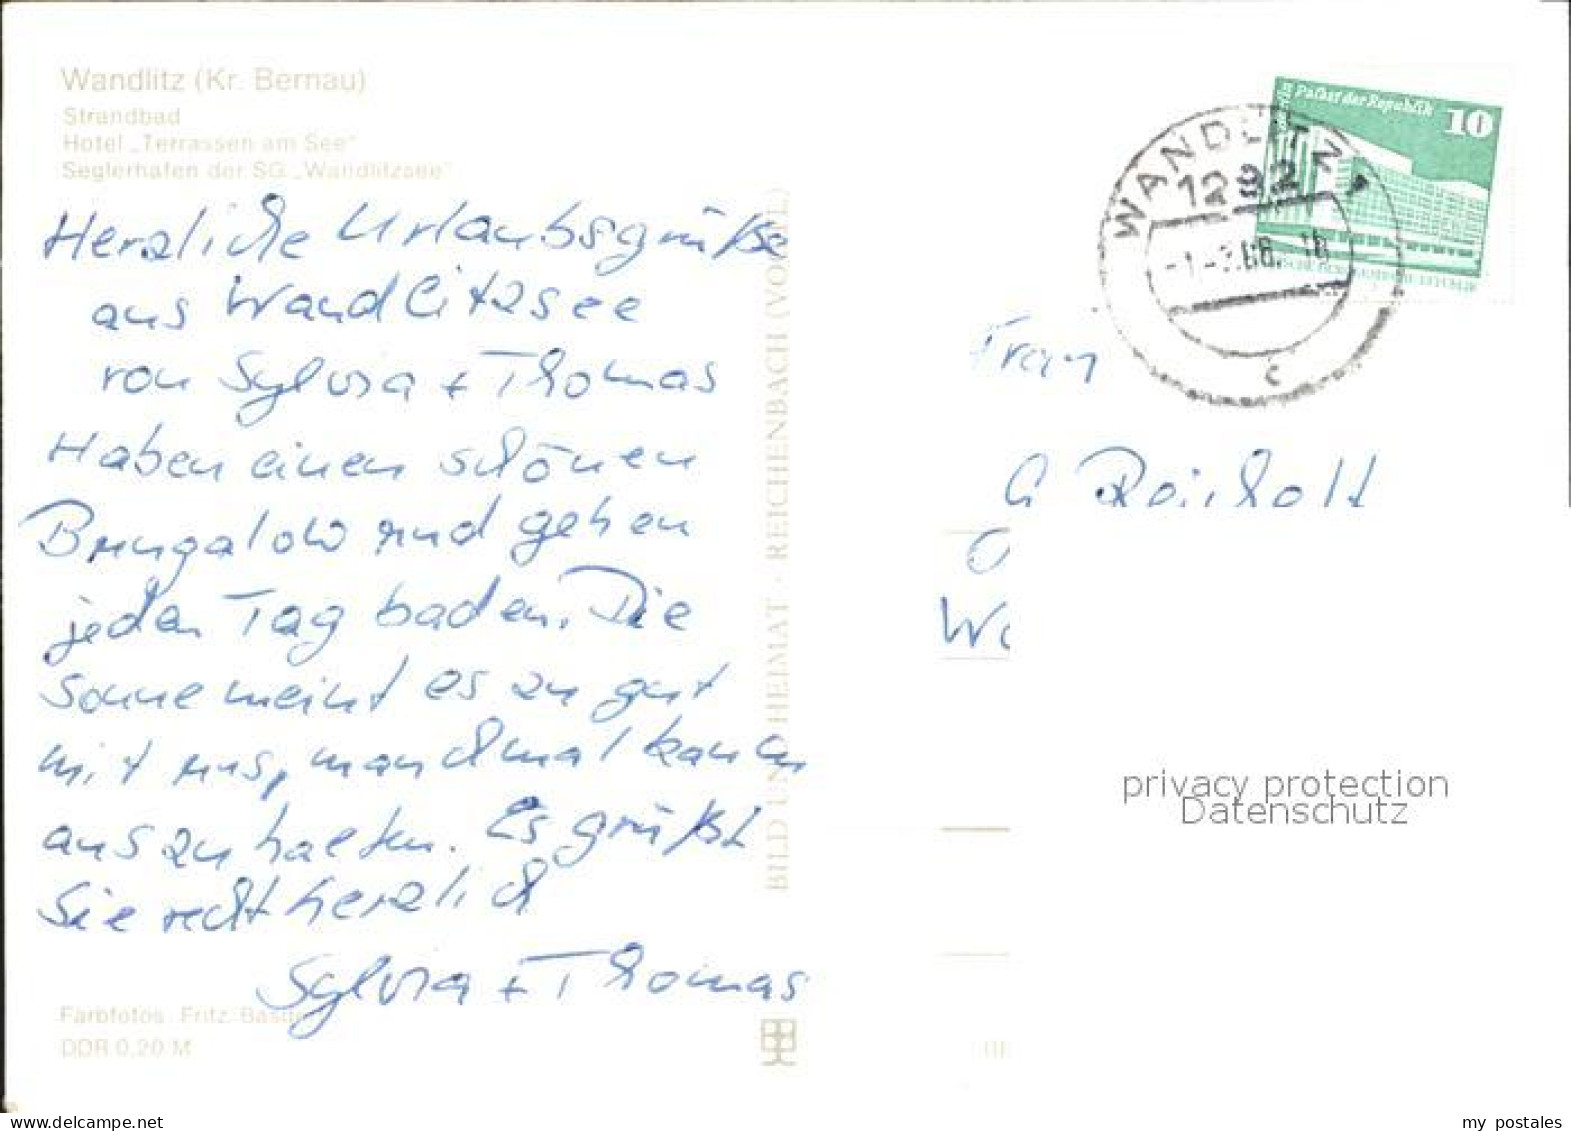 Wandlitz (Kr. Bernau)
Strandbad
Hotel „Terrassen am See"
Seglerhafen der SG „Wandlitzsee"
Herzliche Urlaubsgrüße
aus Wandlitzsee
von Sylvia + Thomas
Haben einen schönen
Bungalow und gehen
jeden Tag baden. Die
Sonne meint es zu gut
mit uns, manchmal kaum
auszuhalten. Es grüßt
Sie recht herzlich
Sylvia + Thomas
Farbfotos: Fritz
DDR 0,20 M
BILD UND HEIMAT · REICHENBACH (VOGTL)
Palast der Republik
10
WANDLITZ
1292
c
Frau
G
privacy protection
Datenschutz
my postales